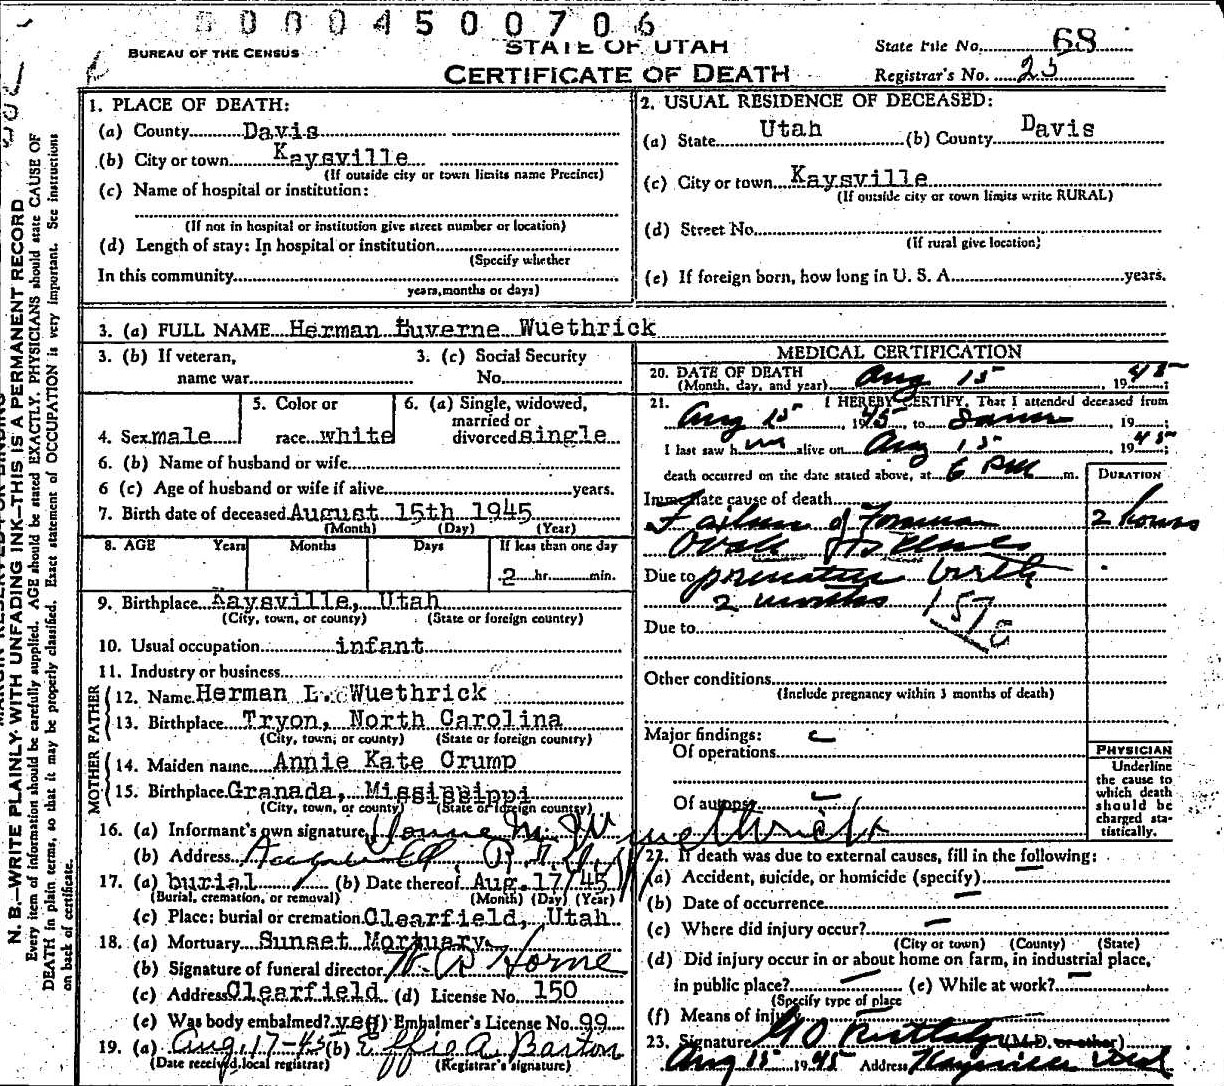 00004500706
STATE OF UTAH
BUREAU OF THE CENSUS
CERTIFICATE OF DEATH
State File No. 68
Registrar's No. 25
1. PLACE OF DEATH:
(a) County Davis
(b) City or town Kaysville
(If outside city or town limits name Precinct)
(c) Name of hospital or institution:
(If not in hospital or institution give street number or location)
(d) Length of stay: In hospital or institution
(Specify whether
In this community
years, months or days)
2. USUAL RESIDENCE OF DECEASED:
(a) State Utah (b) County Davis
(c) City or town Kaysville
(If outside city or town limits write RURAL)
(d) Street No.
(If rural give location)
(e) If foreign born, how long in U. S. A. years.
3. (a) FULL NAME Herman Luverne Wuethrick
3. (b) If veteran, name war
3. (c) Social Security No.
4. Sex male
5. Color or race white
6. (a) Single, widowed, married or divorced single
6. (b) Name of husband or wife
6 (c) Age of husband or wife if alive years.
7. Birth date of deceased August 15th 1945
(Month) (Day) (Year)
8. AGE Years Months Days If less than one day
2 hr. min.
9. Birthplace Kaysville, Utah
(City, town, or county) (State or foreign country)
10. Usual occupation infant
11. Industry or business
FATHER
12. Name Herman L. Wuethrick
13. Birthplace Tryon, North Carolina
(City, town, or county) (State or foreign country)
MOTHER
14. Maiden name Annie Kate Crump
15. Birthplace Granada, Mississippi
(City, town, or county) (State or foreign country)
16. (a) Informant's own signature M. Wuethrick
(b) Address
17. (a) burial (b) Date thereof Aug. 17/45
(Burial, cremation, or removal) (Month) (Day) (Year)
(c) Place: burial or cremation Clearfield, Utah
18. (a) Mortuary Sunset Mortuary
(b) Signature of funeral director Horne
(c) Address Clearfield (d) License No. 150
(e) Was body embalmed? yes (f) Embalmer's License No. 99
19. (a) Aug. 17-45 (b) Effie A. Barton
(Date received local registrar) (Registrar's signature)
MEDICAL CERTIFICATION
20. DATE OF DEATH
(Month, day, and year) Aug 15, 1945;
21. I HEREBY CERTIFY, That I attended deceased from
Aug 15, 1945, to same, 19
I last saw him alive on Aug 15, 1945;
death occurred on the date stated above, at 6 PM m.
DURATION
Immediate cause of death
Failure of Foramen 2 hours
Ovale to close
Due to premature birth
2 months 157
Due to
Other conditions
(Include pregnancy within 3 months of death)
Major findings:
Of operations
Of autopsy
PHYSICIAN
Underline the cause to which death should be charged statistically.
22. If death was due to external causes, fill in the following:
(a) Accident, suicide, or homicide (specify)
(b) Date of occurrence
(c) Where did injury occur?
(City or town) (County) (State)
(d) Did injury occur in or about home on farm, in industrial place,
in public place? (e) While at work?
(Specify type of place
(f) Means of injury
23. Signature (M.D. or other)
Aug 15 1945 Address Kaysville Utah
N. B.—WRITE PLAINLY WITH UNFADING INK—THIS IS A PERMANENT RECORD
Every item of information should be carefully supplied. AGE should be stated EXACTLY. PHYSICIANS should state CAUSE OF
DEATH in plain terms, so that it may be properly classified. Exact statement of OCCUPATION is very important. See instructions
on back of certificate.